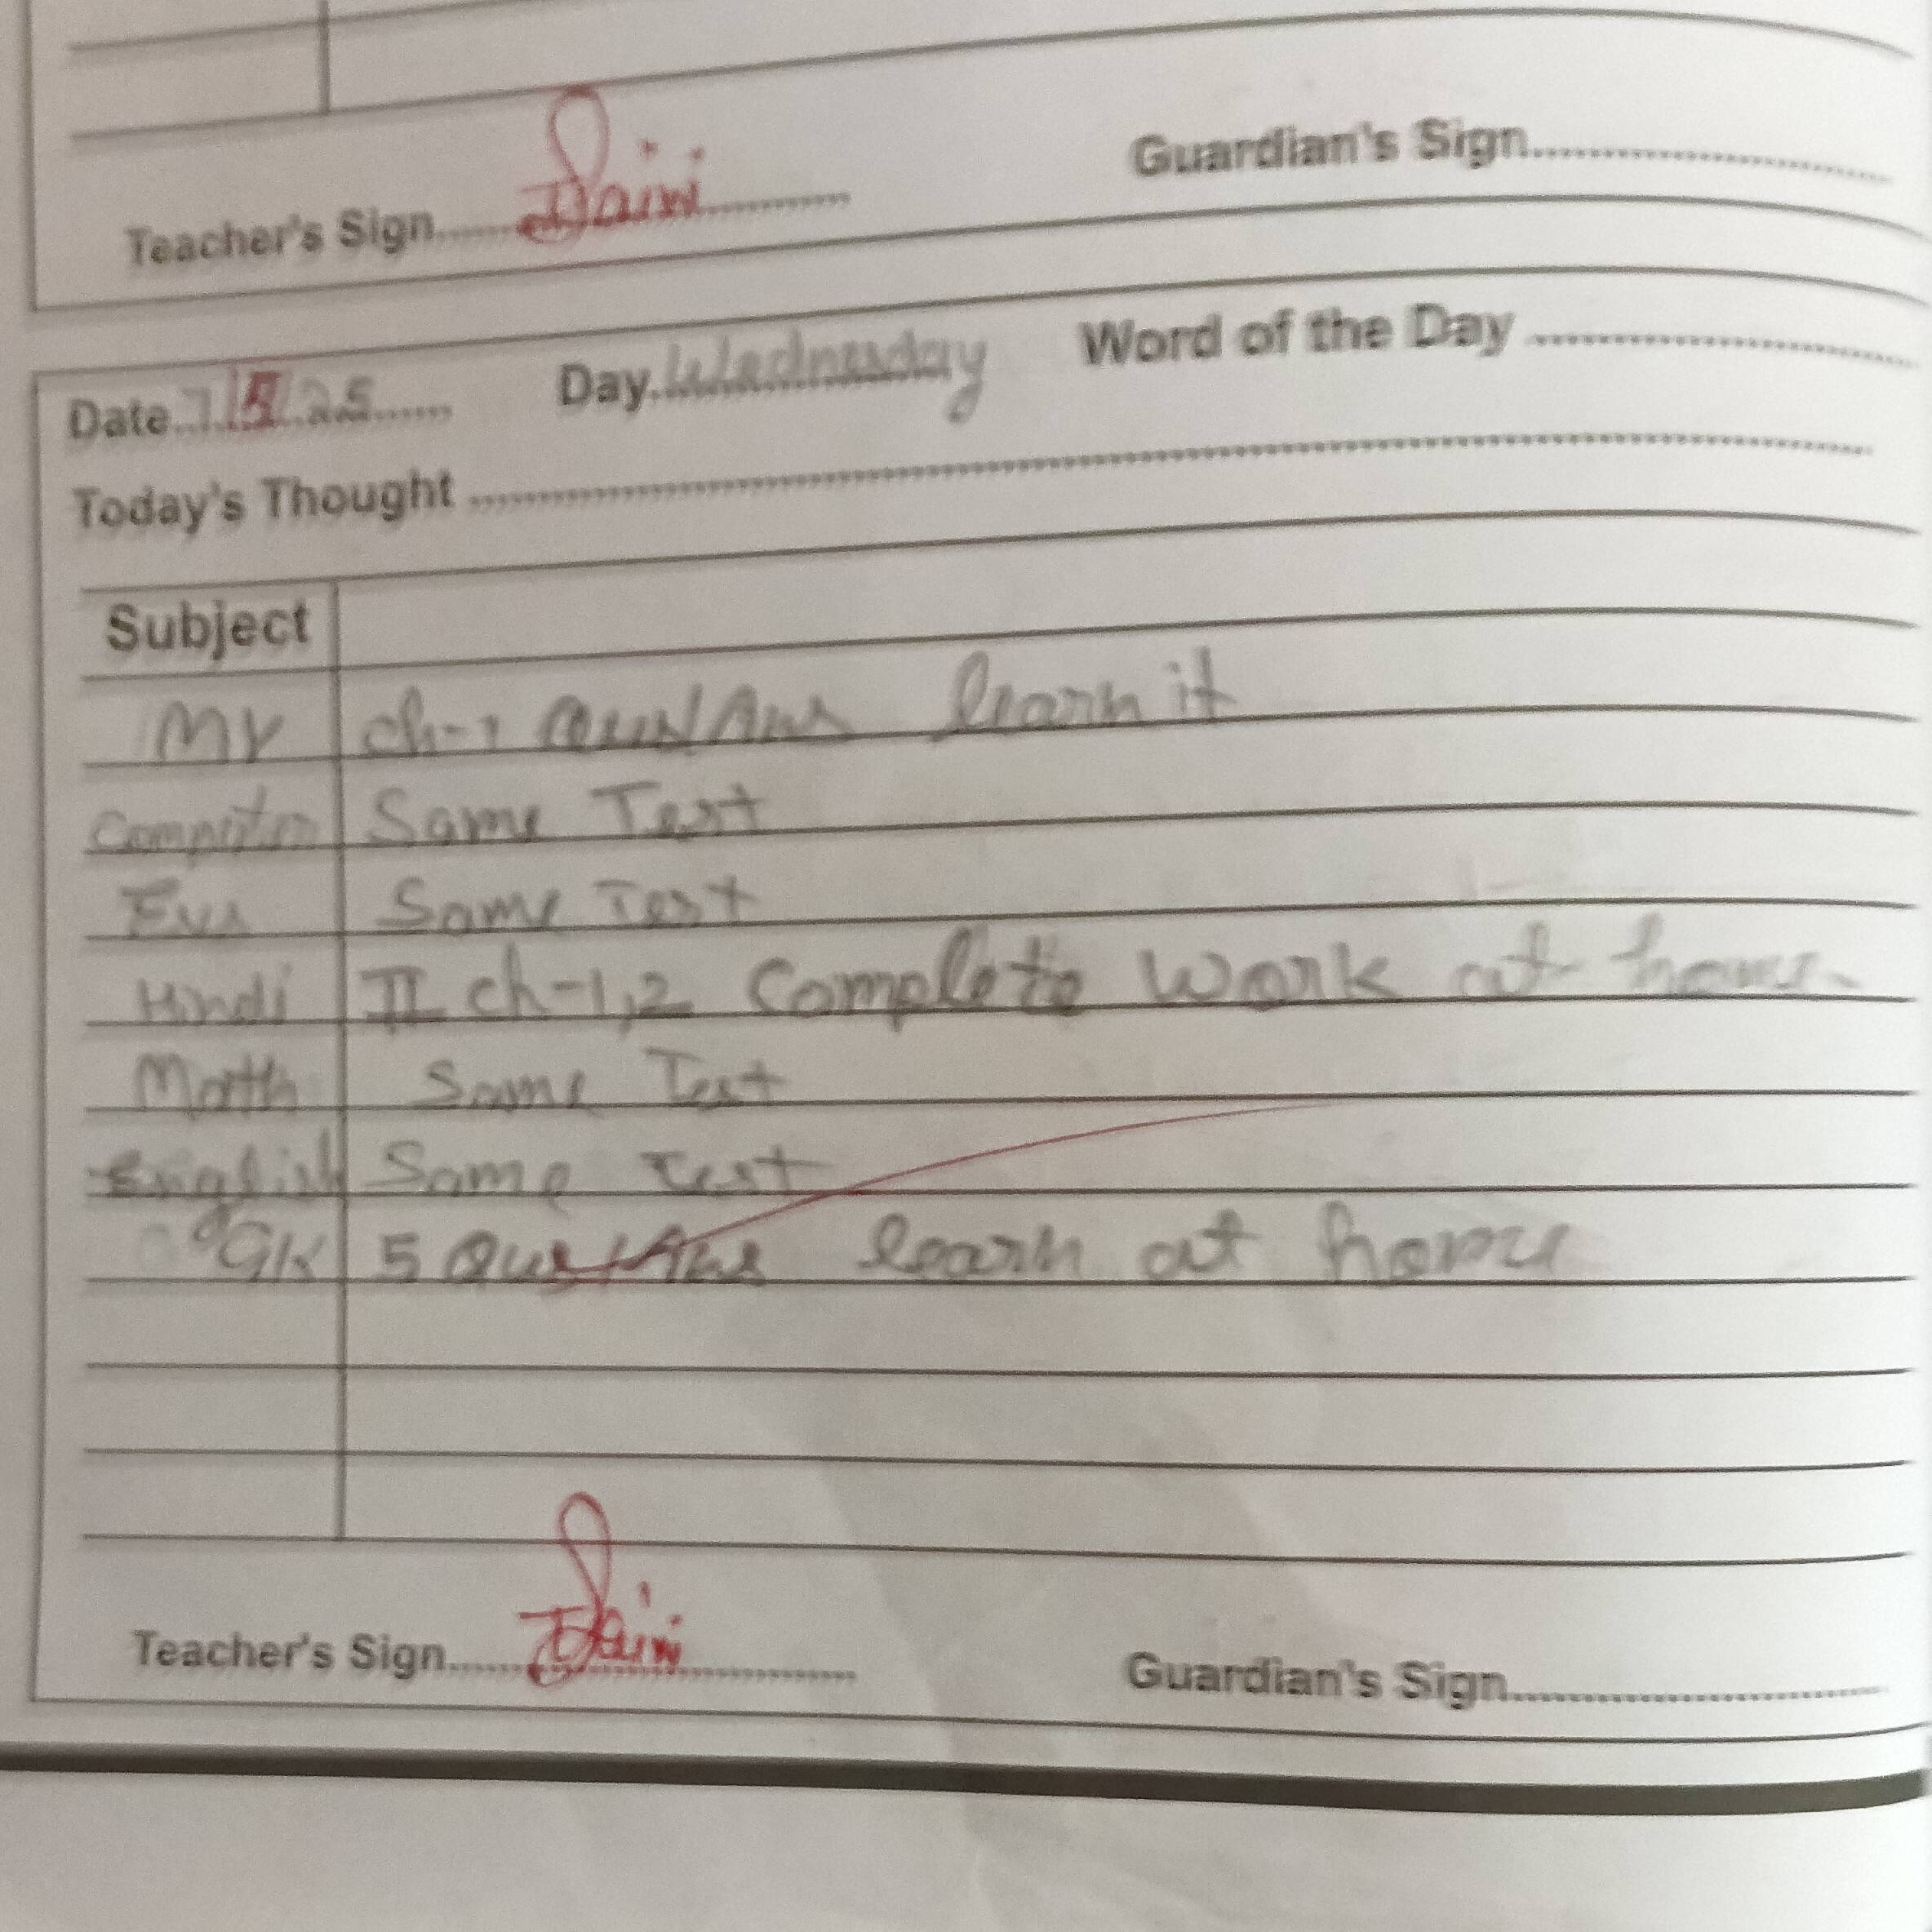 Teacher's Sign.......Saini............ Guardian's Sign..............................
Date 7/5/25....... Day.Wednesday Word of the Day ..............................
Today's Thought ..............................
Subject
MV ch-1 Ques/Ans learn it
Computer Same Test
Evs Same Test
Hindi II ch-1,2 Complete Work at home.
Math Same Test
English Same Test
GK 5 Ques/Ans learn at home
Teacher's Sign.......Saini............ Guardian's Sign..............................